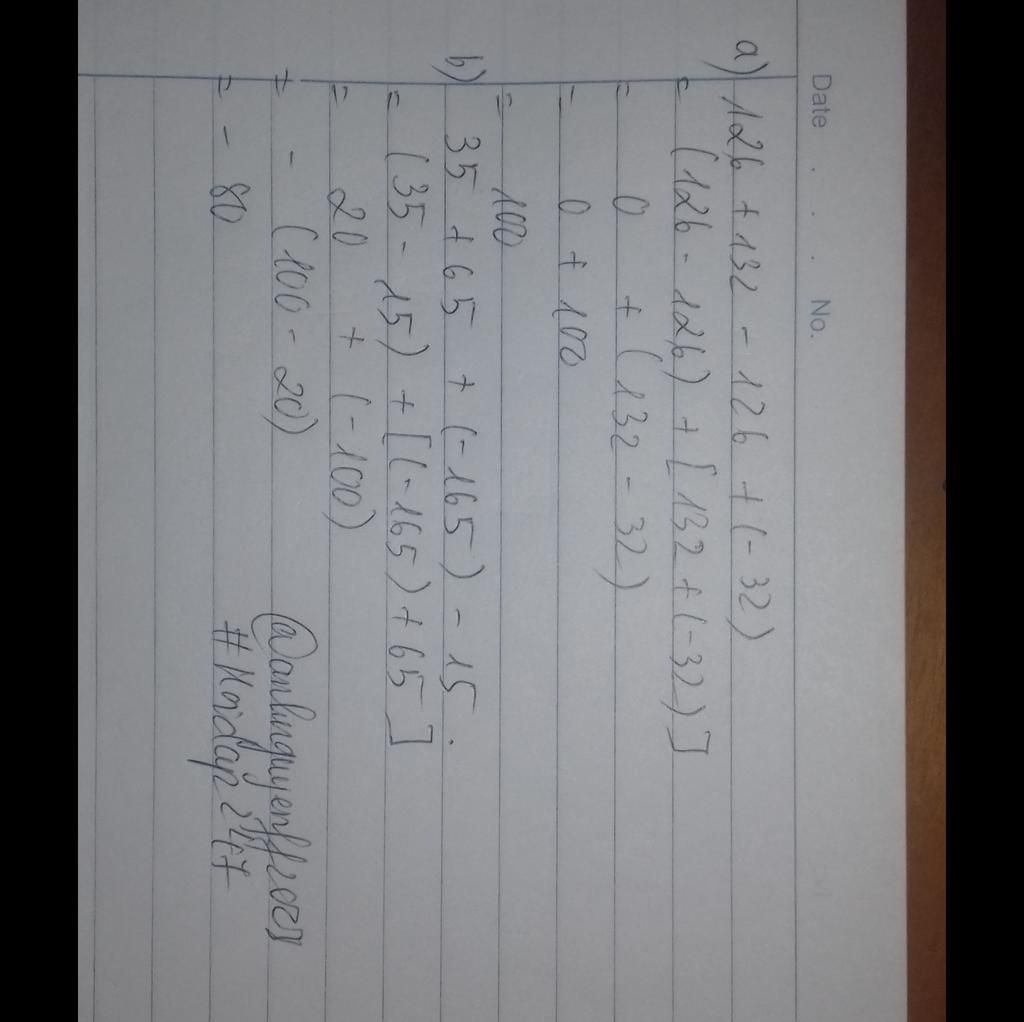 Date . . . No.
a) 126 + 132 - 126 + (-32)
= (126 - 126) + [132 + (-32)]
= 0 + (132 - 32)
= 0 + 100
= 100
b) 35 + 65 + (-165) - 15.
= (35 - 15) + [(-165) + 65]
= 20 + (-100)
= - (100 - 20)
= - 80
#Hoidap247